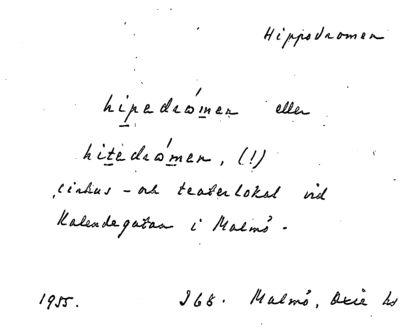 Hippodromen
hipedrómen eller
hitedrómen, (!)
cirkus- och teaterlokal vid
Kalendegatan i Malmö.
1955. 268. Malmö, Oxie hd